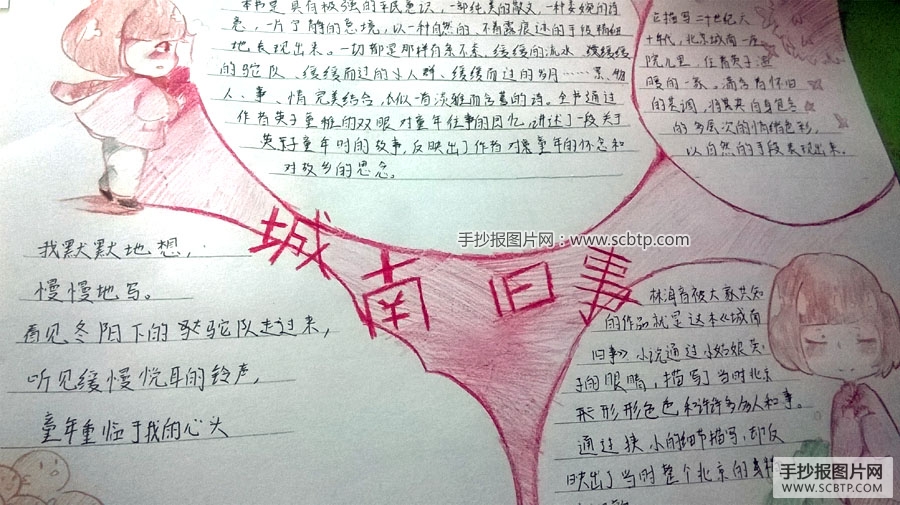 本书是具有极强的平民意识,一部经美的散文,一种委婉的诗
意,一片宁静的意境,以一种自然的、不着露痕迹的手段精细
地表现出来。一切都是那样有条不紊,缓缓的流水、缓缓
的驼队、缓缓而过的人群、缓缓而过的岁月……景、物、
人、事、情完美结合,似一首淡雅而含蓄的诗。全书通过
作者英子童稚的双眼对童年往事的回忆,讲述了一段关于
英子童年时的故事,反映出了作者对童年的怀念和
对故乡的思念。
它描写二十世纪六
十年代,北京城南一座
院儿里,住着英子温
暖的一家。满含着怀旧
的基调,将其自身包含
的多层次的情绪色彩,
以自然的手段表现出来。
城南旧事
手抄报图片网:www.scbtp.com
我默默地想,
慢慢地写。
看见冬阳下的骆驼队走过来,
听见缓慢悦耳的铃声,
童年重临于我的心头
林海音被大家共知
的作品就是这本《城南
旧事》小说通过小姑娘英
子的眼睛,描写了当时北京
形形色色和许许多多人和事。
通过狭小的细节描写,却反
映出了当时整个北京的
手抄报图片网
WWW.SCBTP.COM